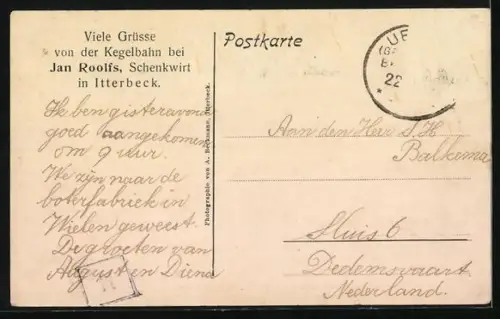 Viele Grüsse
von der Kegelbahn bei
Jan Roolfs, Schenkwirt
in Itterbeck.
Ik ben gisteravond
goed aangekomen
om 9 uur.
We zijn naar de
boterfabriek in
Wielen geweest.
De groeten van
August en Diena
Photographie von A. Beckmann, Itterbeck.
Postkarte
UE
22
*
Aan den Heer S. H
Balkema
Sluis 6
Dedemsvaart
Nederland.